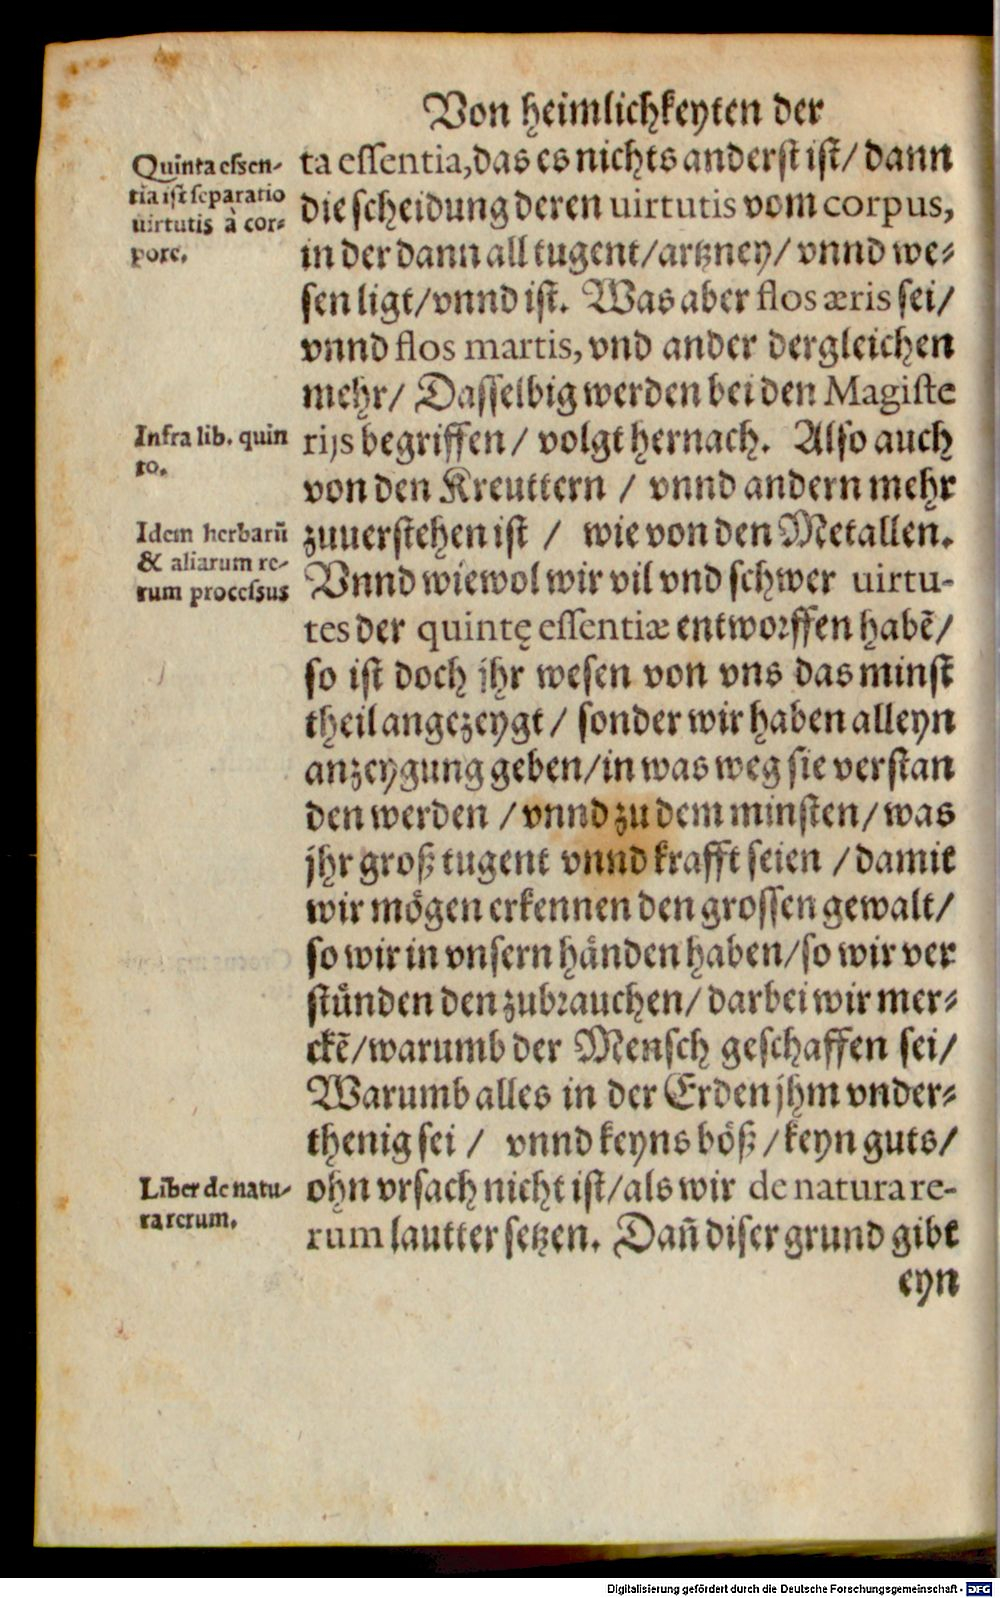 Von heimlichkeyten der
Quinta essen-
tia ist separatio
uirtutis à cor-
pore.
ta essentia, das es nichts anderst ist/ dann
die scheidung deren uirtutis vom corpus,
in der dann all tugent/artzney/ vnnd we-
sen ligt/vnnd ist. Was aber flos æris sei/
vnnd flos martis, vnd ander dergleichen
mehr/ Dasselbig werden bei den Magiste
Infra lib. quin
to.
rijs begriffen/ volgt hernach. Also auch
von den Kreuttern / vnnd andern mehr
Idem herbarũ
& aliarum re-
rum processus
zuuerstehen ist / wie von den Metallen.
Vnnd wiewol wir vil vnd schwer uirtu-
tes der quintę essentiæ entworffen habẽ/
so ist doch jhr wesen von vns das minst
theil angezeygt/ sonder wir haben alleyn
anzeygung geben/in was weg sie verstan
den werden /vnnd zu dem minsten/was
jhr groß tugent vnnd krafft seien /damit
wir mögen erkennen den grossen gewalt/
so wir in vnsern händen haben/so wir ver
stünden den zubrauchen/ darbei wir mer-
ckẽ/warumb der Mensch geschaffen sei/
Warumb alles in der Erden jhm vnder-
thenig sei / vnnd keyns böß /keyn guts/
Liber de natu-
ra rerum.
ohn vrsach nicht ist/als wir de natura re-
rum lautter setzen. Dañ diser grund gibt
eyn
Digitalisierung gefördert durch die Deutsche Forschungsgemeinschaft - DFG